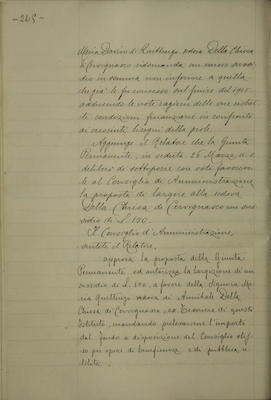 - 265 -
Maria Danino di Quattrengo vedova Della Chiesa
di Cervignasco ridomanda un nuovo sussi-
dio in denaro non inferiore a quella
che già le fu concesso sul finire del 1905
adducendo le note ragioni delle sue ristret-
te condizioni finanziarie in confronto
ai cresciuti bisogni della prole.
Aggiunge il Relatore che la Giunta
Permanente, in seduta 26 Marzo u. s.
deliberò di sottoporre con voto favorevo-
le al Consiglio di Amministrazione
la proposta di largire alla vedova
Della Chiesa di Cervignasco un sus-
sidio di L. 150.
Il Consiglio d'Amministrazione,
sentito il Relatore,
approva la proposta della Giunta
Permanente, ed autorizza la largizione di un
sussidio di L. 150, a favore della Signora Ma-
ria vedova di Annibale Della
Chiesa di Cervignasco, ex di questo
Istituto, mandando prelevarne l'importo
dal fondo a disposizione del Consiglio
per opere di beneficenza e di pubblica u-
tilità.